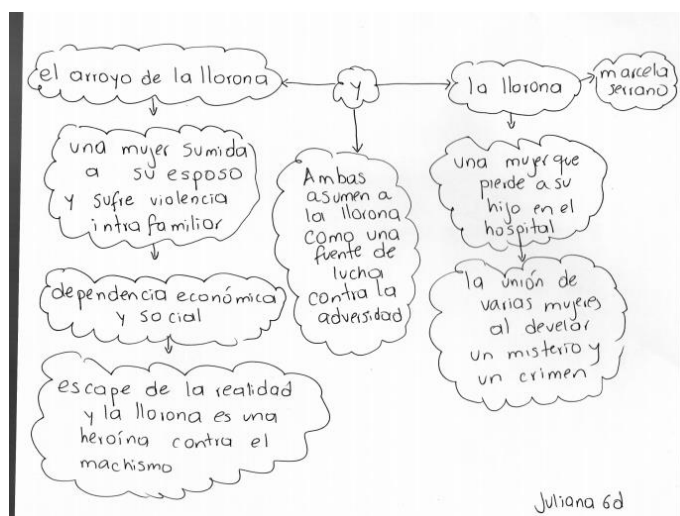 el arroyo de la llorona
y
la llorona
marcela
serrano
una mujer sumida
a su esposo
y sufre violencia
intrafamiliar
dependencia económica
y social
escape de la realidad
y la llorona es una
heroína contra el
machismo
Ambas
asumen a
la llorona
como una
fuente de
lucha
contra la
adversidad
una mujer que
pierde a su
hijo en el
hospital
la unión de
varias mujeres
al develar
un misterio y
un crimen
Juliana 6d